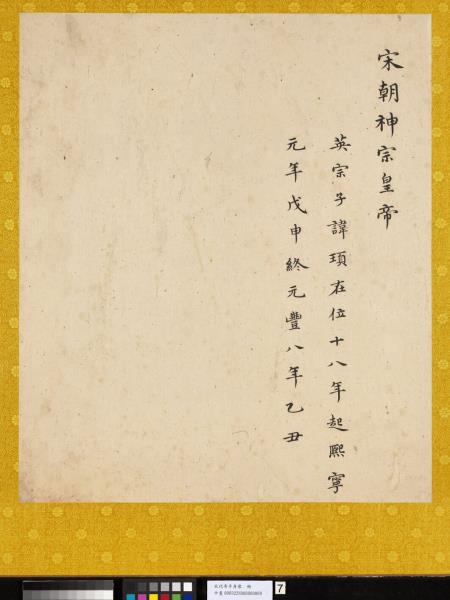 宋朝神宗皇帝
英宗子諱頊在位十八年起熙寧
元年戊申終元豐八年乙丑
宋代帝半身像 冊
7